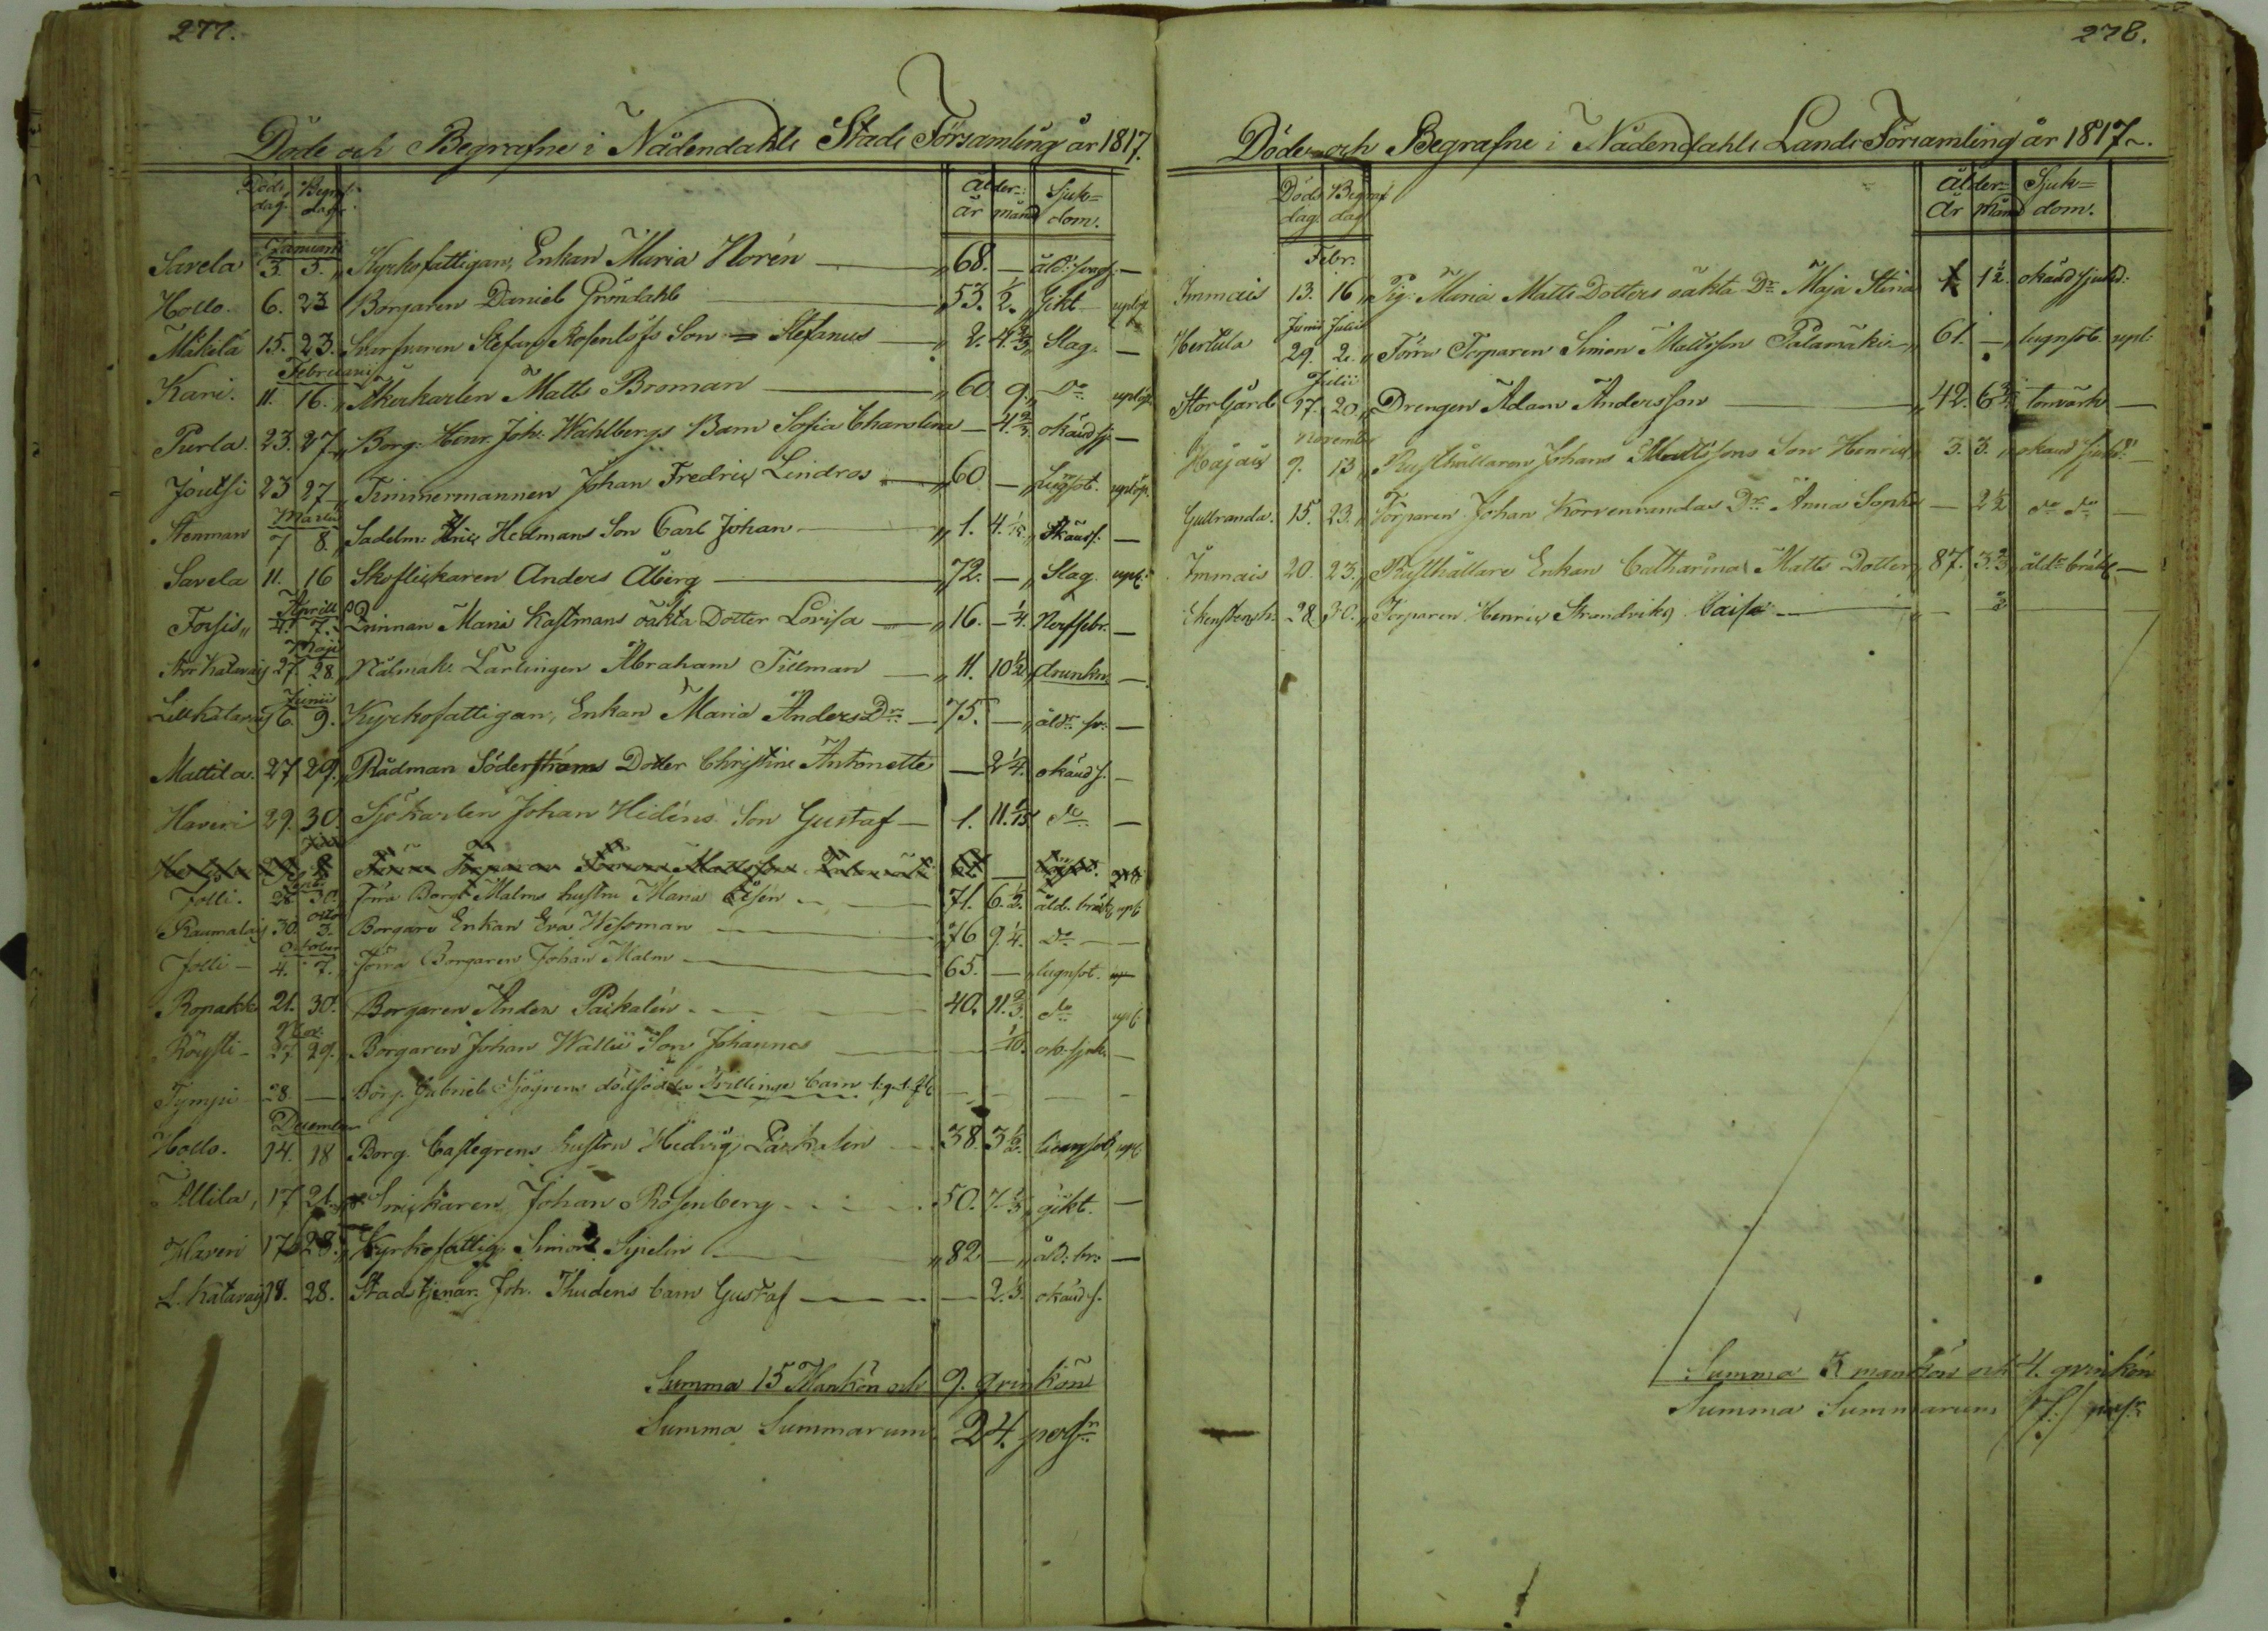 277.
Döde och Begrafne i Nådendahls Stads Församling år 1817.
Döds dag. Begraf: dag. Ålder: år månd Sjuk= dom.
Januarii
Savela 3. 5. Kyrkofattigan, Enkan Maria Norén 68. — åld: svagh: —
Hollo. 6. 23 Borgaren Daniel Gröndahl 53. ½. Gikt uplöp.
Mattila 15. 23. Svarfvaren Stefan Rosenlöfs Son Stefanus 2. 4 2/3 Slag. —
Februarii
Kari. 11. 16. Åkerkarlen Matts Broman 60. 9. Do uplöp.
Purla. 23. 27. Borg: Henr. Joh: Wahlbergs Barn Sofia Charolina — 4 2/3. okänd sj. —
Joutsi 23 27 Timmermannen Johan Fredric Lindros 60 — Lugsot. uplöp.
Martii
Stenman 7 8. Sadelm: Hedmans Son Carl Johan 1. 4. okänd s. —
Savela 11. 16 Skoflickaren Anders Åberg 72. — Slag. upl:
Aprill
Forsis 4. 7. Qvinnan Maria Kastmans oäkta Dotter Lovisa 16. — ¼. Nerffebr. —
Maji
Stor Katavais 27. 28. Nålmak: Lärlingen Abraham Tillman 11. 10½ drunkn. —
Junii
Lill Katavais 6. 9. Kyrkofattigan, Enkan Maria Anders Dr. 75. — åldr: sv: —
Mattila. 27 29. Rådman Söderströms Dotter Christine Antonette — 2¼. okänd s. —
Haveri 29. 30. Sjökarlen Johan Hidéns Son Gustaf 1. 11. do —
Förra Torparen Simon Mattsson Palamäki 61. — Lugsot.
Jolli. 28 30. Förra Borg: Malms hustru Maria 71. 6½. åld. bräckl upl:
Octob
Raumalais 30. 3. Borgare Enkan Eva Wessman 76 9¼. Do —
October
Jolli 4. 7. Förra Borgaren Johan Malm 65. — lugnsot.
Ropakko 21. 30. Borgaren Anders Paikalén 40. 11 2/3. do upl:
Nov:
Röysti 27 29. Borgaren Johan Wallii Son Johannes — 1/10. ok. sjuk. —
Tympi 28. — Borg. Gabriel Sjögrens dödfödda Trillinge barn — — — —
December
Hollo. 14. 18 Borg. Castegrens hustru Hedvig Paikalén 38. 3½. upl:
Allila, 17 21. Snickaren Johan Rosenberg 50. 7. gikt. —
Haveri 17 28. Kyrkofattig Simon Sjielin 82 — åld: br: —
L. Katavais 18. 28. Stadstjenar. Joh. Thudens barn Gustaf — 2. 3. okänd s.
Summa 15 Mankön och 9. qvinkön
Summa Summarum 24. pers:r
278.
Döde och Begrafne i Nådendahls Lands Församling år 1817.
Döds dag Begraf dag Ålder: År Månd Sjuk= dom.
Febr:
Immais 13. 16 Pig. Maria Matts Dotters oäkta Dr. Maja Stina 1½. okänd sjukd:
Junii Julii
Hertula 29. 2. Förra Torparen Simon Mattsson Palamäki 61. — lugnsot. upl:
Julii
Storgård 17. 20. Drengen Adam Andersson 42. 6¾ torrvärk —
November
Haijais 9. 13 Rusthållaren Johans Mattssons Son Henric 3. 3. okänd sjukd: —
Gullranda. 15. 23. Torparen Johan Korvenrandas Dr. Anna Sophia — 2½ do do —
Immais 20. 23. Rusthållare Enkan Catharina Matts Dotter 87. 3 2/3 åldr bräckl —
28 30. Torparen Henric Strandviks —
Summa 3 mankön och 4. qvinkön
Summa Summarum 7. pers:r